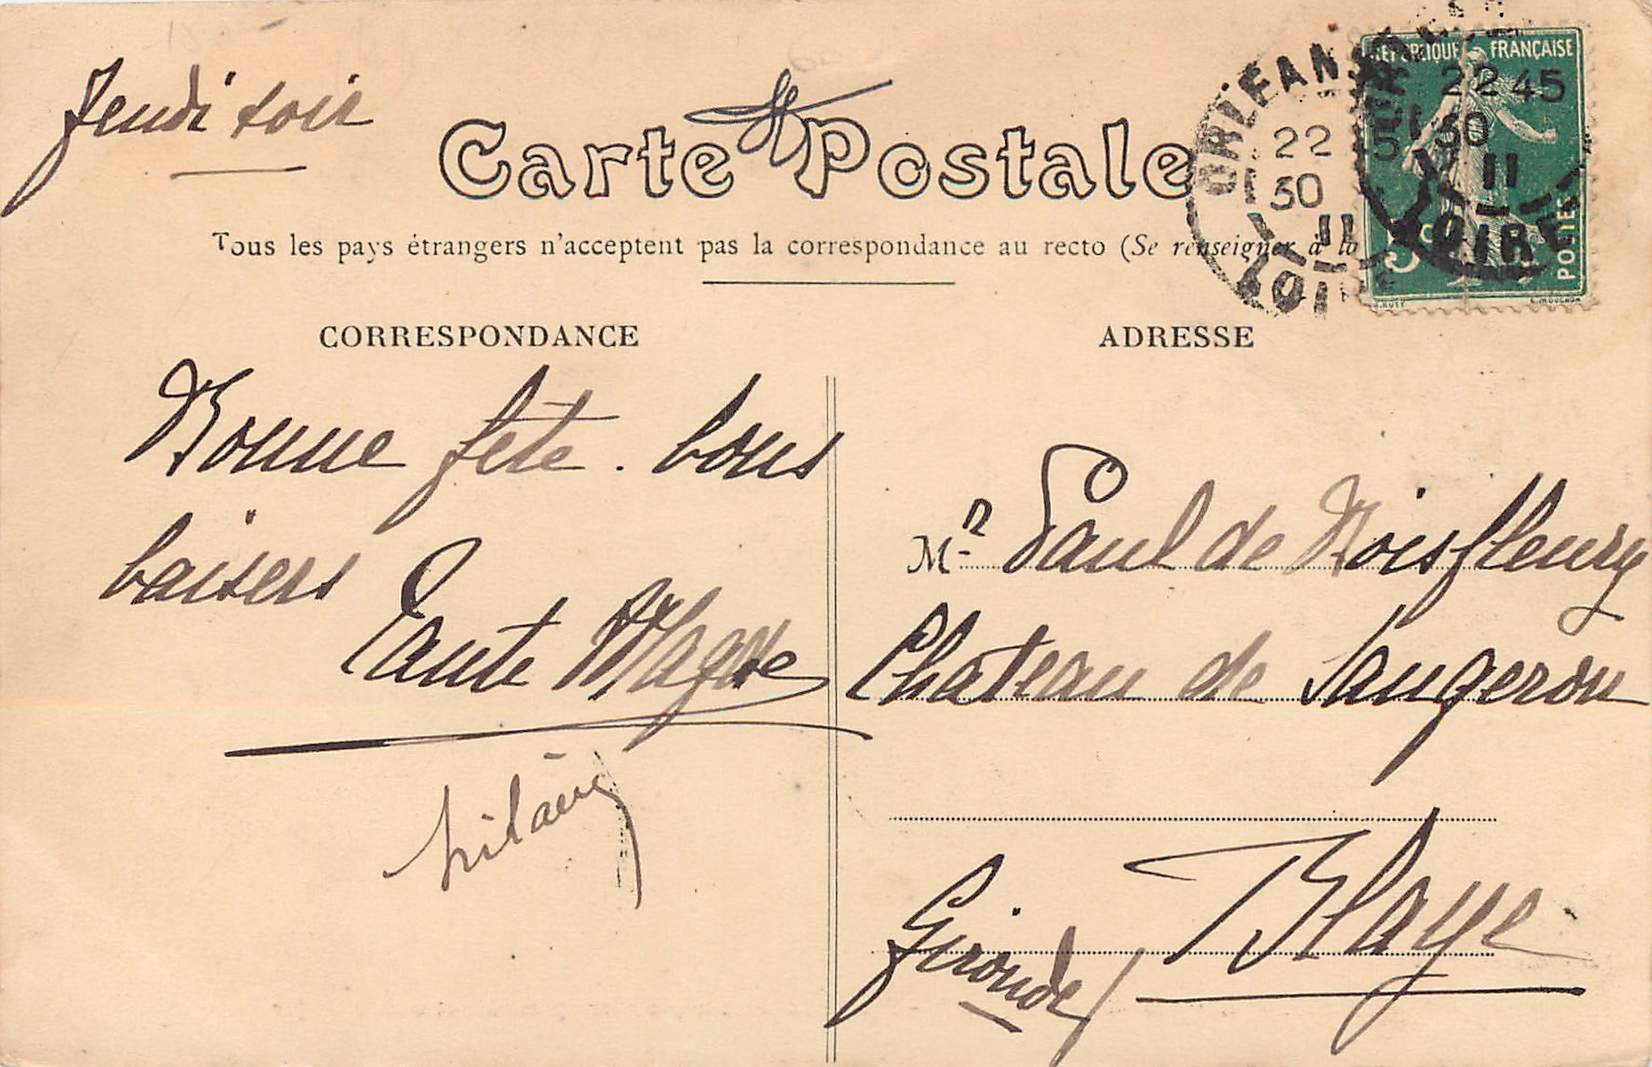 Jeudi soir
Carte Postale
Tous les pays étrangers n'acceptent pas la correspondance au recto (Se renseigner à la
RÉPUBLIQUE FRANÇAISE
POSTES
ORLEANS
22 45
30
11
LOIRET
22 45
30
11
LOIRET
CORRESPONDANCE
ADRESSE
Bonne fête. bons
baisers
Tante
Mr Paul de Boisfleury
Chateau de Saugeron
Blaye
Gironde